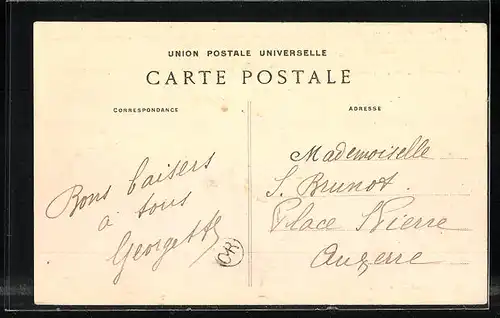 UNION POSTALE UNIVERSELLE
CARTE POSTALE
CORRESPONDANCE
ADRESSE
Bons baisers
à tous
Georgette
OR
Mademoiselle
S. Brunot.
Place St Pierre
Auxerre